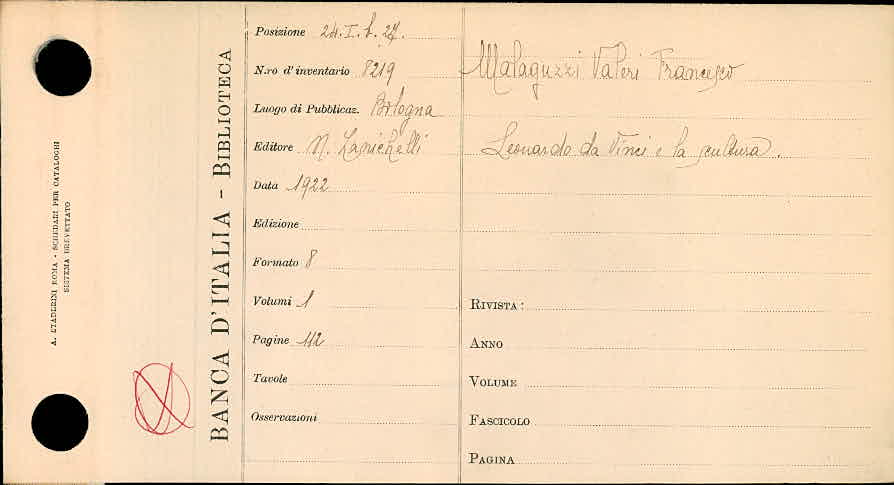 A. STADERINI ROMA - SCHEDARI PER CATALOGHI
SISTEMA BREVETTATO
BANCA D'ITALIA - BIBLIOTECA
Posizione 24. I. b. 27.
N.ro d'inventario 8219
Luogo di Pubblicaz. Bologna
Editore N. Zanichelli
Data 1922
Edizione
Formato 8
Volumi 1
Pagine 112
Tavole
Osservazioni
Malaguzzi Valeri Francesco
Leonardo da Vinci e la scultura.
RIVISTA:
ANNO
VOLUME
FASCICOLO
PAGINA